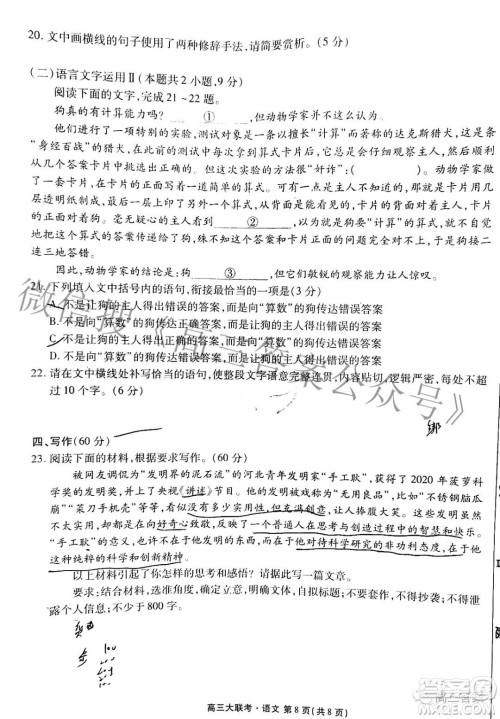 20. 文中画横线的句子使用了两种修辞手法,请简要赏析。(5 分)
(二)语言文字运用Ⅱ(本题共2小题,9分)
阅读下面的文字,完成21~22题。
狗真的有计算能力吗? ① ,但动物学家并不这么认为。
他们进行了一项特别的实验,测试对象是一条以擅长“计算”而著称的达克斯猎犬,这是条
“身经百战”的猎犬,在此前的测试中每次拿到算式卡片,它都会仔细观察主人,然后从摆放好的
几个答案卡片中挑选出正确的答案。但这次的实验人员很“奸诈”:( )。答案卡片的
正面的确写着算式的答案,反面却写着另一道算式,卡片的正面对着狗,狗的主人只能看到卡片
的反面。毫无疑心的主人 ② ,以为就是狗要计算的算式,因此下意识地示意狗要
把这个算式的答案传给他,殊不知这个答案并不是卡片正面那个算式的答案,于是狗接二
连三地答错。
因此,动物学家的结论是:狗 ③ ,但其观察能力足以让人惊叹。
21. 下列填入文中括号内的语句,衔接最恰当的一项是(3 分)
A. 不是让狗的主人得出错误的答案,而是向“算数”的狗传达错误的答案
B. 不是向“算数”的狗传达错误的答案,而是让狗的主人得出错误的答案
C. 不是让狗的主人得出错误的答案,而是向“算数”的狗传达错误的答案
D. 不是向“算数”的狗传达错误的答案,而是让狗的主人得出错误的答案
22. 请在文中横线处补写恰当的语句,使整段文字语意完整连贯,内容贴切,逻辑严密,每处不超
过10个字。(6 分)
四、写作(60 分)
23. 阅读下面的材料,根据要求写作。(60 分)
被网友调侃为“发明界的泥石流”的河北青年发明家“手工耿”,获得了2020年菠萝科
学奖的发明奖,并登上央视《讲述》栏目。他的发明常被称为“无用良品”,比如“不锈钢脑瓜
崩”“菜刀手机壳”等等,看似没有多少实用性,但充满创意,让人捧腹大笑。有人认为,
“手工耿”的意义,在于好奇心致敬,在于发现了一个普通人在思考与创造过程中的智慧和快乐。
“手工耿”的意义,不在于他发明的东西,而在于他对待科学研究的非功利态度,在于他
这种纯粹的科学和创新精神。
以上材料引起了你怎样的思考和感悟?请据此写一篇文章。
要求:结合材料,选准角度,确定立意,明确文体,自拟标题;不要套作,不得抄袭;不得泄
露个人信息;不少于 800 字。
高三大联考·语文 第 8 页(共 8 页)
微信搜《高三答案公众号》